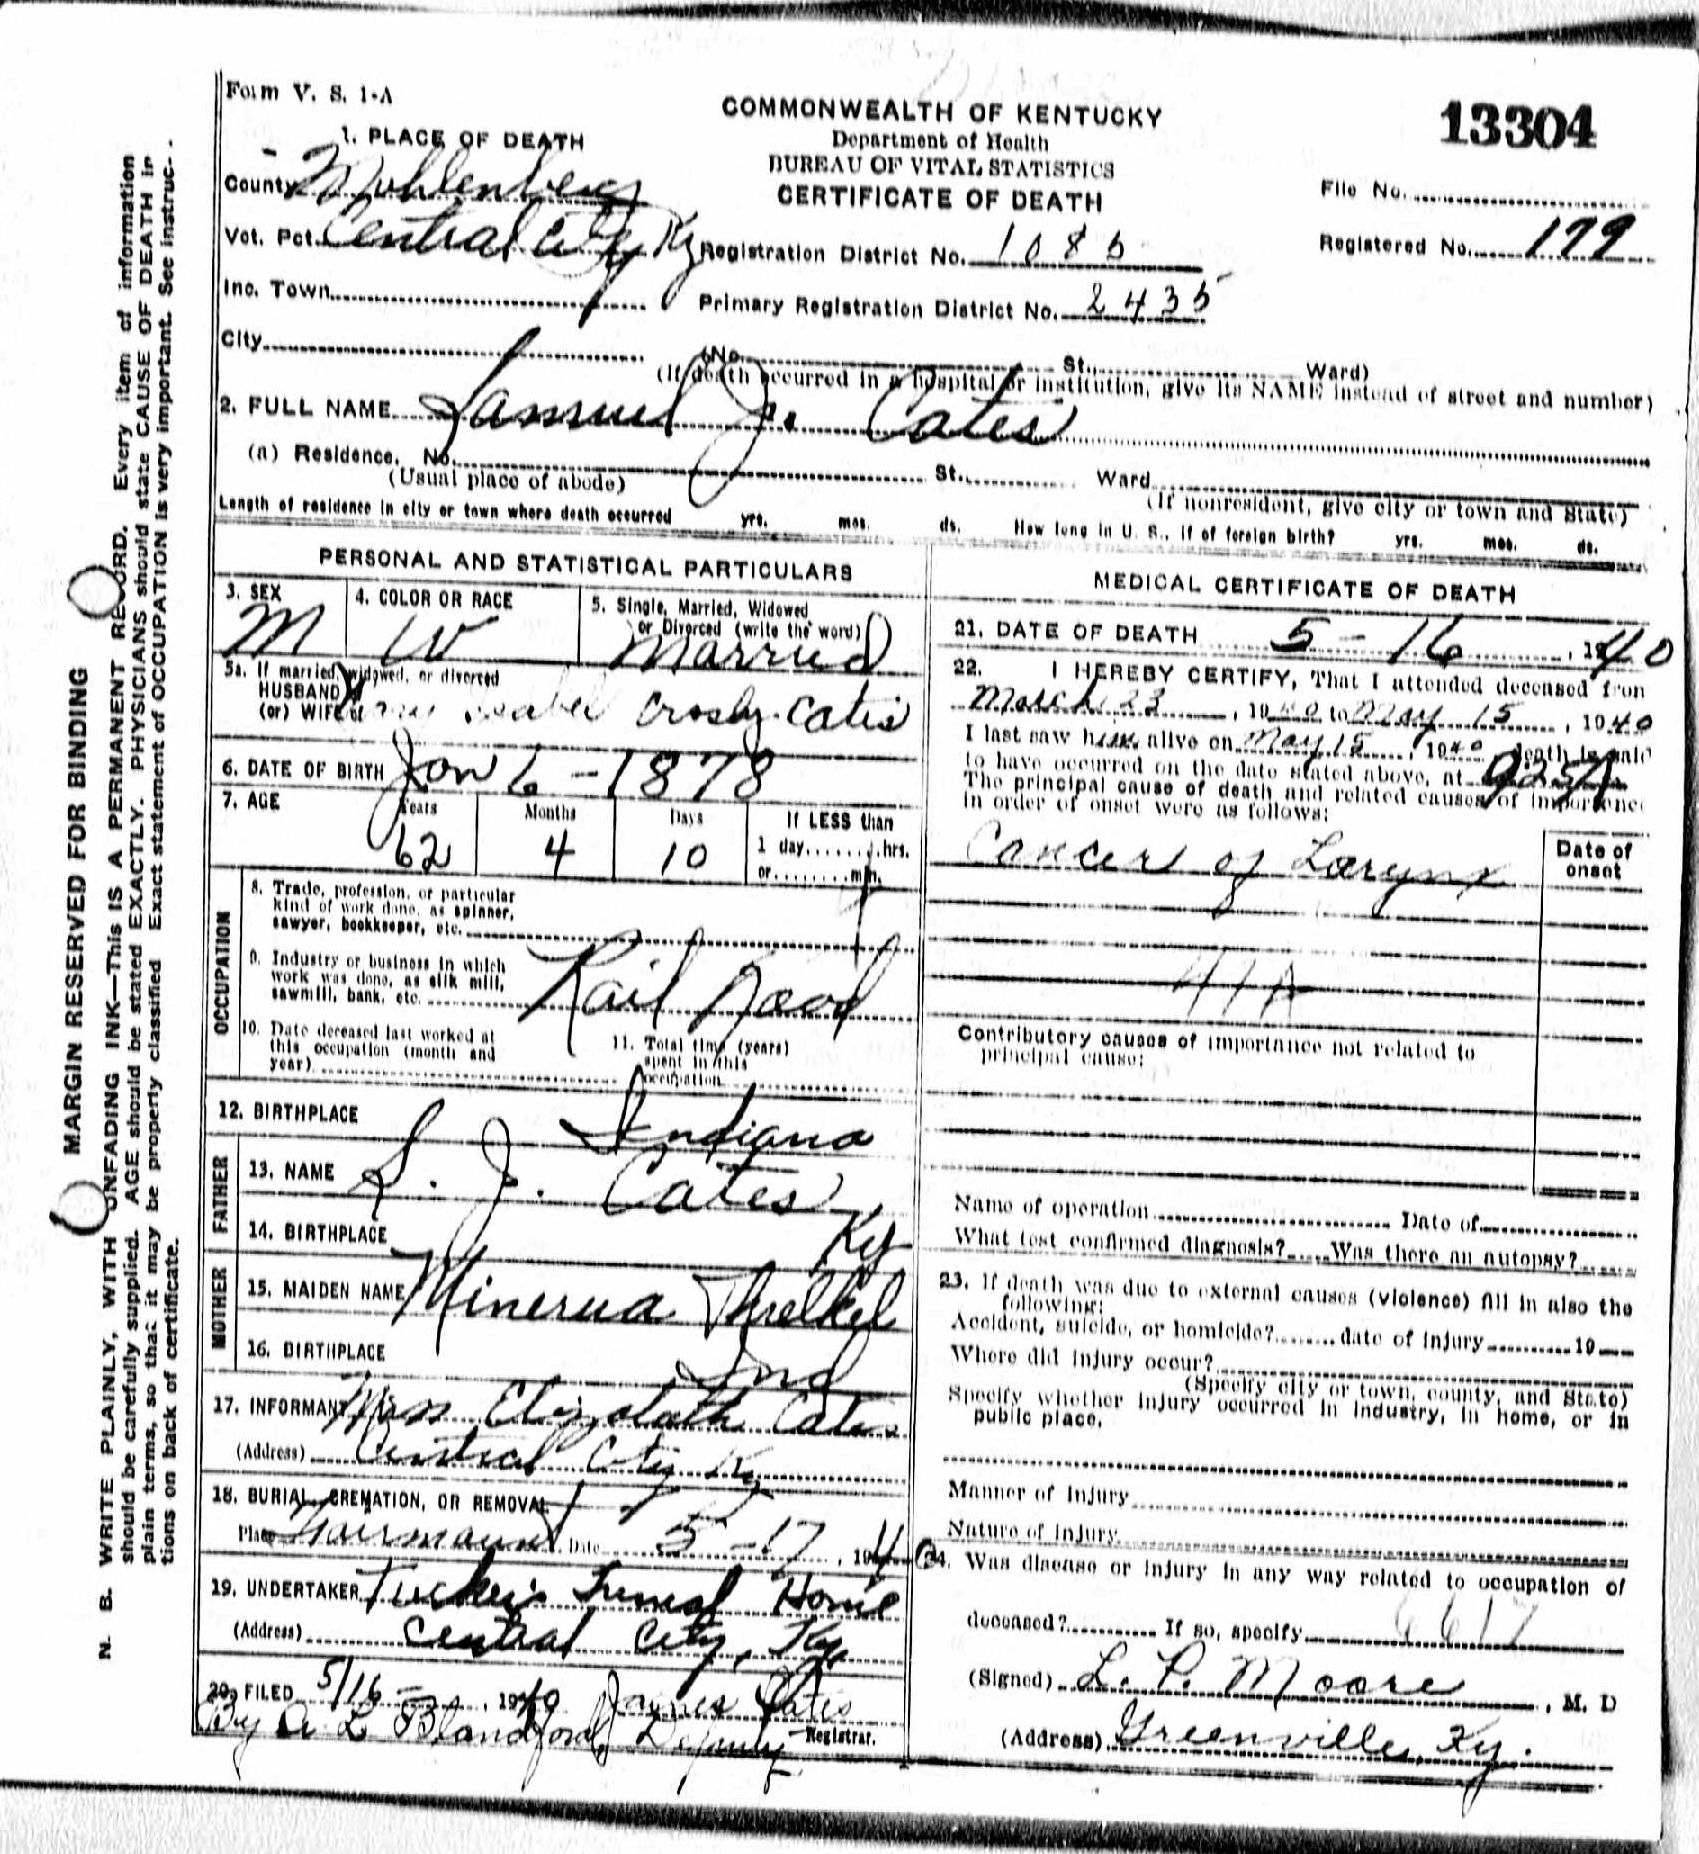 Form V. S. 1-A
COMMONWEALTH OF KENTUCKY
Department of Health
BUREAU OF VITAL STATISTICS
CERTIFICATE OF DEATH
13304
File No.
Registered No. 179
1. PLACE OF DEATH
County Mohlenberg
Vot. Pct. Central City Ky
Inc. Town
City
Registration District No. 1085
Primary Registration District No. 2435
(No. St., Ward)
(If death occurred in a hospital or institution, give its NAME instead of street and number)
2. FULL NAME Samuel J. Cates
(a) Residence. No. St. Ward
(Usual place of abode) (If nonresident, give city or town and State)
Length of residence in city or town where death occurred yrs. mos. ds. How long in U. S., if of foreign birth? yrs. mos. ds.
PERSONAL AND STATISTICAL PARTICULARS
3. SEX M
4. COLOR OR RACE W
5. Single, Married, Widowed or Divorced (write the word) Married
5a. If married, widowed, or divorced
HUSBAND of
(or) WIFE of Crosby Cates
6. DATE OF BIRTH Jan 6 - 1878
7. AGE Years 62 Months 4 Days 10 If LESS than
1 day hrs.
or min.
OCCUPATION
8. Trade, profession, or particular
kind of work done, as spinner,
sawyer, bookkeeper, etc.
9. Industry or business in which
work was done, as silk mill,
sawmill, bank, etc. Rail Road
10. Date deceased last worked at
this occupation (month and
year)
11. Total time (years)
spent in this
occupation
12. BIRTHPLACE Indiana
FATHER
13. NAME S. J. Cates
14. BIRTHPLACE Ky
MOTHER
15. MAIDEN NAME Minerva Threlkel
16. BIRTHPLACE Ind
17. INFORMANT Miss Elizabeth Cates
(Address) Central City Ky
18. BURIAL, CREMATION, OR REMOVAL
Place Fairmount Date 5-17, 194
19. UNDERTAKER Tucker's Funeral Home
(Address) Central City, Ky.
20. FILED 5/16 - , 1940 James Cates
Registrar.
By A L Blandford, Deputy
MEDICAL CERTIFICATE OF DEATH
21. DATE OF DEATH 5 - 16, 1940
22. I HEREBY CERTIFY, That I attended deceased from
March 23, 1940 to May 15, 1940
I last saw him alive on May 15, 1940 death is said
to have occurred on the date stated above, at 925A
The principal cause of death and related causes of importance
in order of onset were as follows:
Date of
onset
Cancer of Larynx
Contributory causes of importance not related to
principal cause:
Name of operation Date of
What test confirmed diagnosis? Was there an autopsy?
23. If death was due to external causes (violence) fill in also the
following:
Accident, suicide, or homicide? date of injury 19
Where did injury occur?
(Specify city or town, county, and State)
Specify whether injury occurred in industry, in home, or in
public place.
Manner of Injury
Nature of Injury
24. Was disease or injury in any way related to occupation of
deceased? If so, specify
(Signed) L. P. Moore, M. D
(Address) Greenville, Ky.
MARGIN RESERVED FOR BINDING
N. B. WRITE PLAINLY, WITH UNFADING INK—THIS IS A PERMANENT RECORD. Every item of information
should be carefully supplied. AGE should be stated EXACTLY. PHYSICIANS should state CAUSE OF DEATH in
plain terms, so that it may be properly classified Exact statement of OCCUPATION is very important. See instruc-
tions on back of certificate.